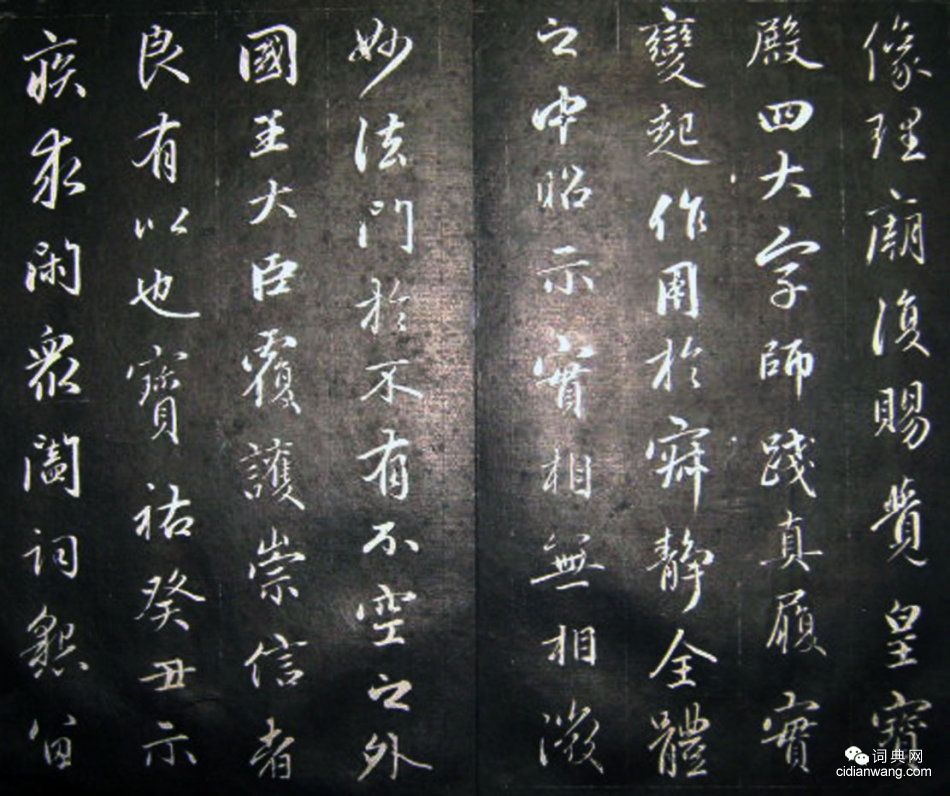 像理廟復賜覺皇寶
殿四大字師踐真履實
變起作用於寂靜全體
之中昭示實相無相微
妙法門於不有不空之外
國王大臣覆護崇信者
良有以也寶祐癸丑示
疾求閑眾闔詞懇留
词典网
cidianwang.com